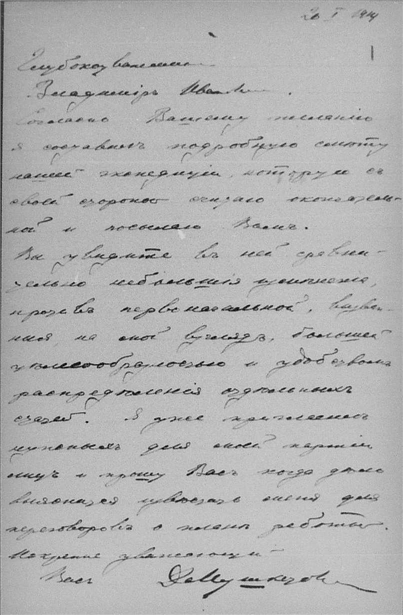 20 I 1914
Глубокоуважаемый
Владимиръ Ивановичъ.
Согласно Вашему желанію
я составилъ подробную смѣту
нашей экспедиціи, которую съ
своей стороны считаю окончатель-
ной и посылаю Вамъ.
Вы увидите въ ней сравни-
тельно небольшія измѣненія,
противъ первоначальной, вызван-
ныя, на мой взглядъ, большей
цѣлесообразностью и удобствомъ
распредѣленія отдѣльныхъ
статей. Я уже пригласилъ
нужныхъ для моей партіи
лицъ и прошу Васъ когда дѣло
выяснится извѣстить меня для
переговоровъ о планѣ работы.
Искренне уважающій
Васъ